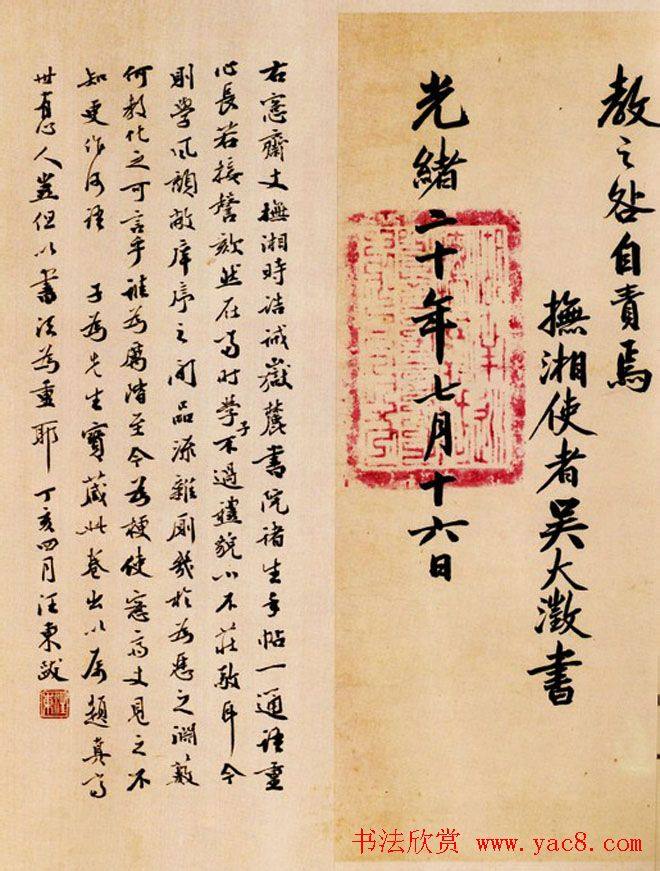 教之咎自責焉
撫湘使者吳大澂書
光緒二十年七月十六日
右愙齋丈撫湘時誥誡嶽麓書院諸生手帖一通語重
心長若接謦欬然在當時學子不過禮貌小不莊敬耳今
則學風頹敝庠序之間品流雜廁幾於為慝之淵藪
何教化之可言乎誰為厲階至今為梗使愙齋丈見之不
知更作何語 子為先生寶藏此卷出以屬題真當
世有心人豈但以書法為重耶 丁亥四月汪東跋
书法欣赏 www.yac8.com